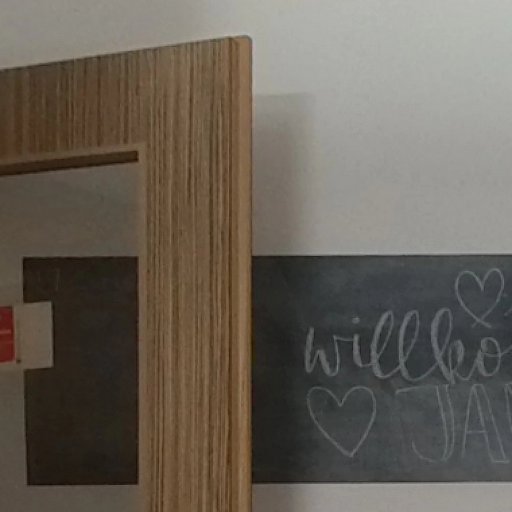 willko
JA